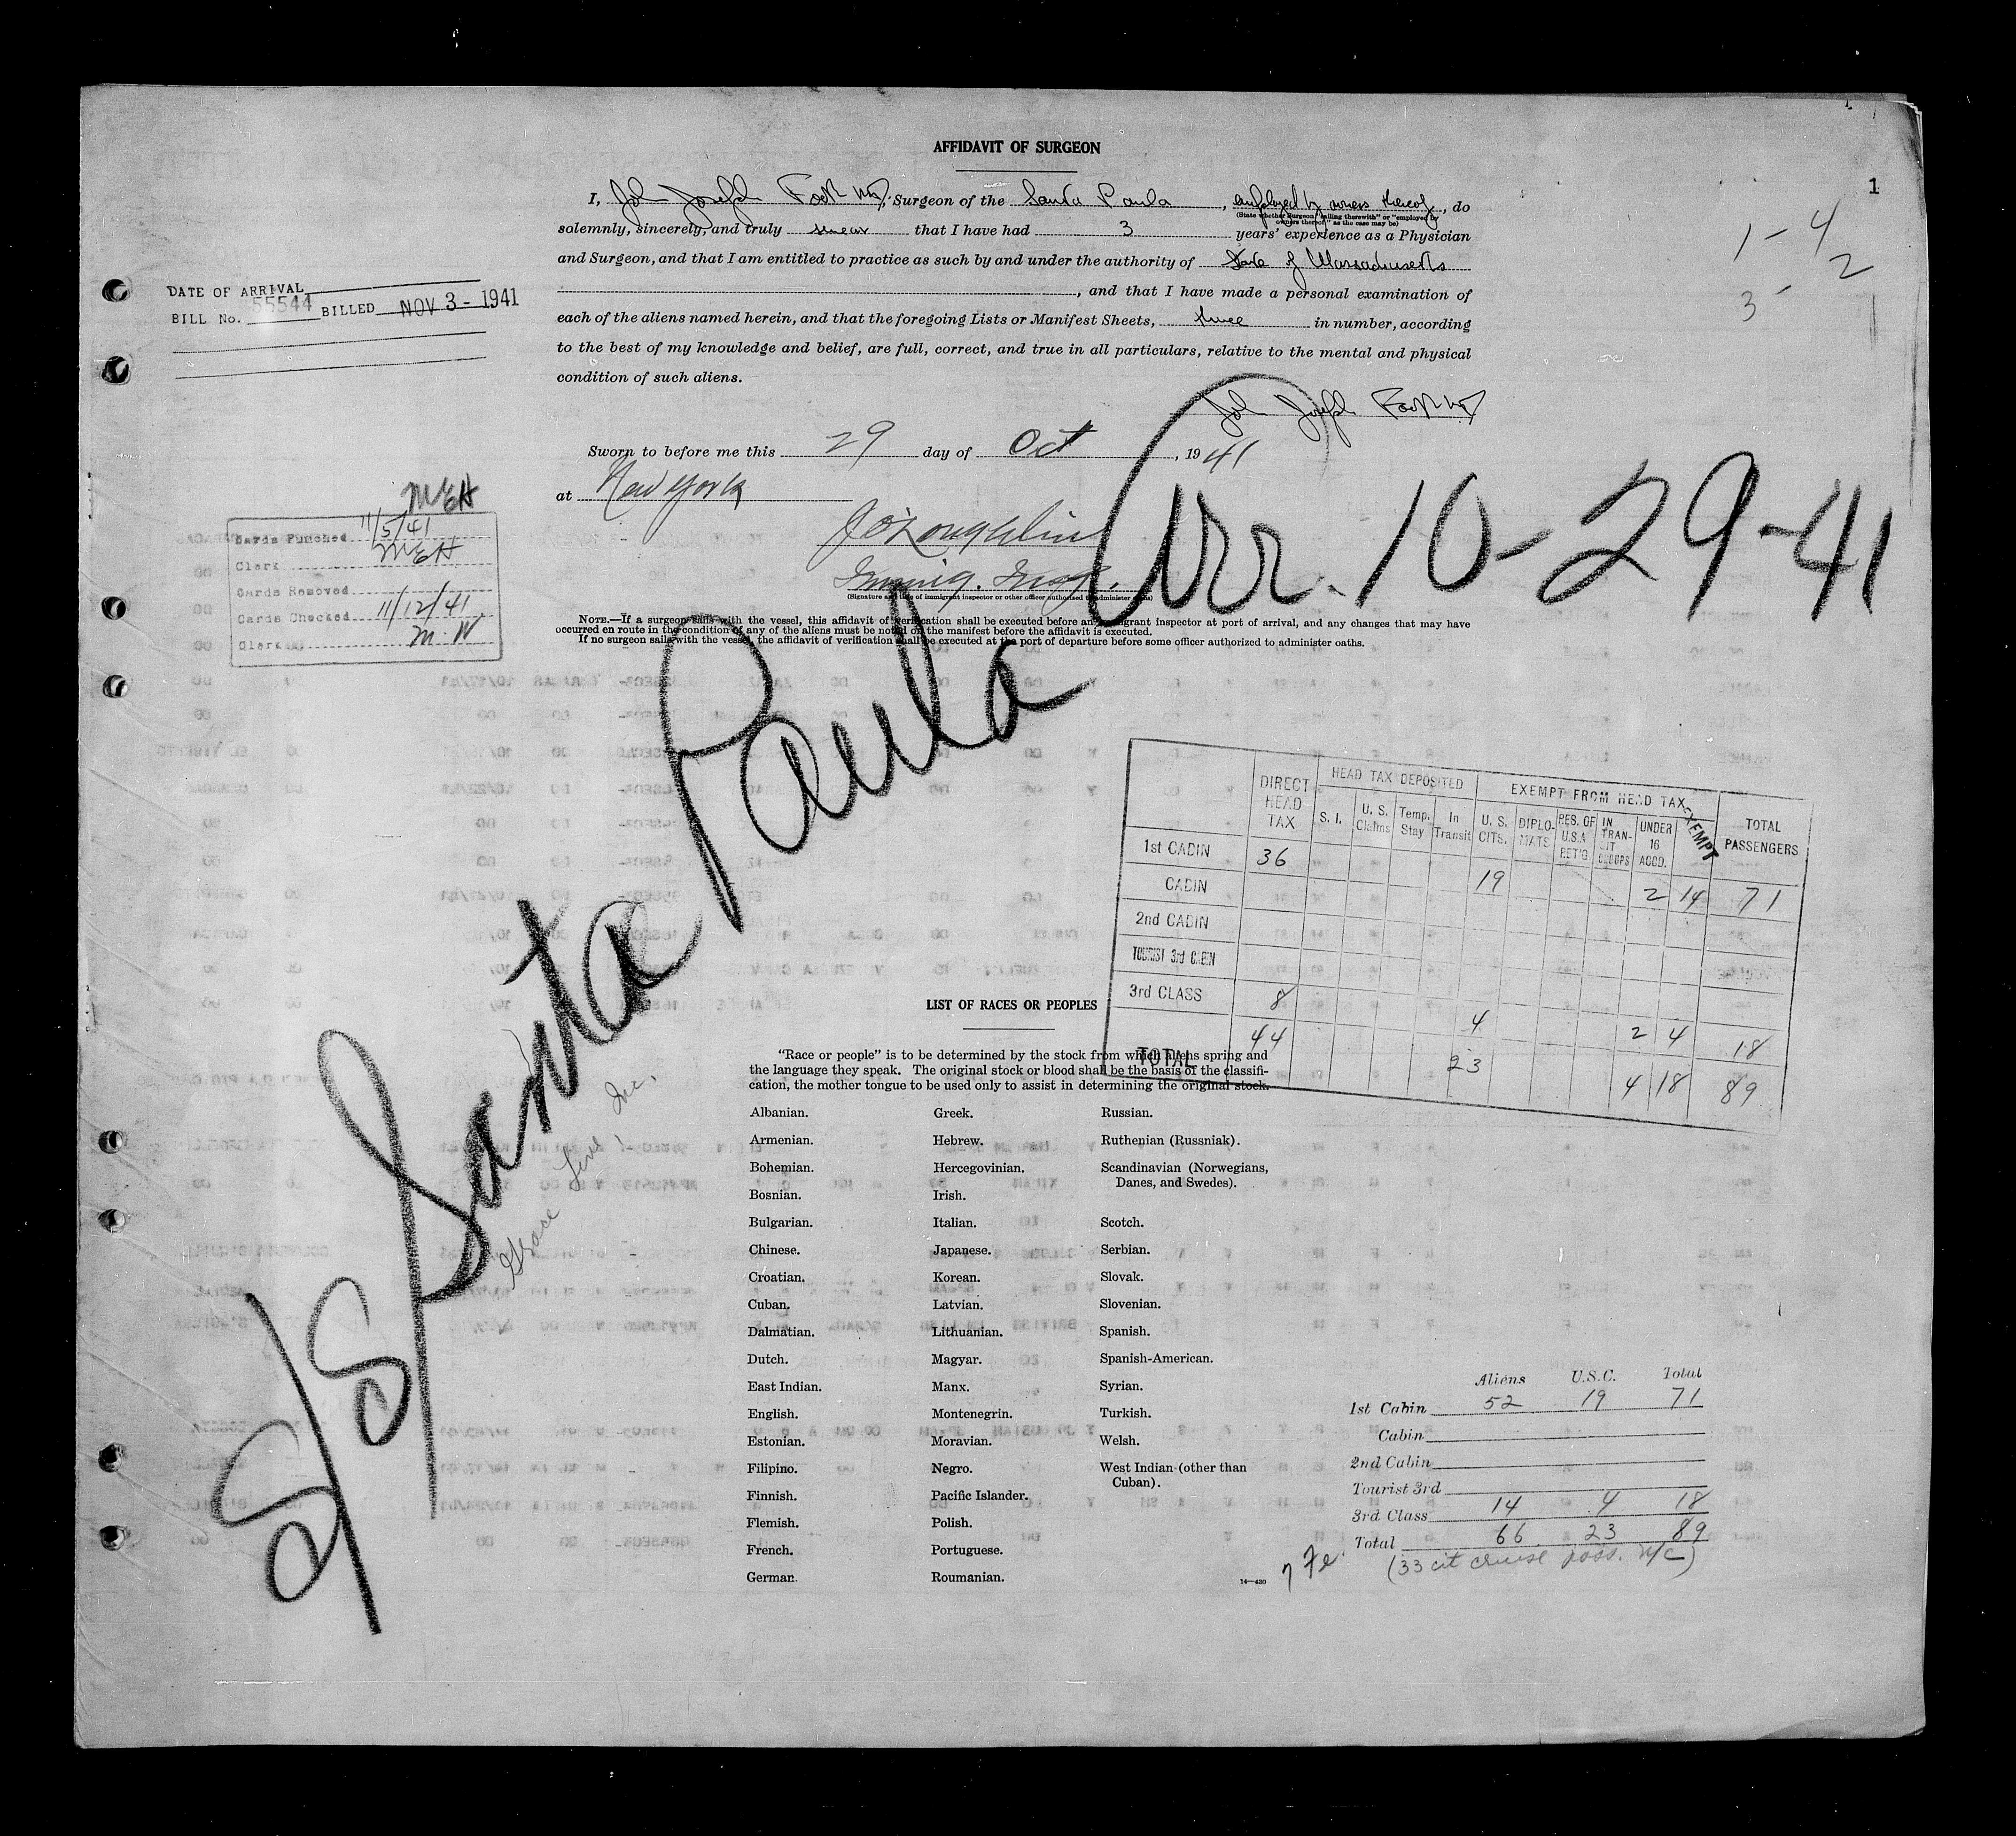 1
AFFIDAVIT OF SURGEON
I, John Joseph Foot MD, Surgeon of the Santa Paula, employed by owners thereof, do
(State whether Surgeon "sailing therewith" or "employed by
owners thereof," as the case may be)
solemnly, sincerely, and truly swear that I have had 3 years' experience as a Physician
and Surgeon, and that I am entitled to practice as such by and under the authority of State of Massachusetts
, and that I have made a personal examination of
each of the aliens named herein, and that the foregoing Lists or Manifest Sheets, three in number, according
to the best of my knowledge and belief, are full, correct, and true in all particulars, relative to the mental and physical
condition of such aliens.
John Joseph Foot MD
Sworn to before me this 29 day of Oct, 1941
at New York
J O'Loughlin
Immig. Insp.
(Signature and title of immigrant inspector or other officer authorized to administer oaths)
NOTE.—If a surgeon sails with the vessel, this affidavit of verification shall be executed before an immigrant inspector at port of arrival, and any changes that may have
occurred en route in the condition of any of the aliens must be noted on the manifest before the affidavit is executed.
If no surgeon sails with the vessel, the affidavit of verification shall be executed at the port of departure before some officer authorized to administer oaths.
1 - 4
2
3 - 1
DATE OF ARRIVAL
BILL No. 55544 BILLED NOV 3 - 1941
MEH
Cards Punched 11/5/41
Clerk MEH
Cards Removed
Cards Checked 11/12/41
Clerk M. W
Arr. 10-29-41
S/S Santa Paula
Grace Line, Inc.
DIRECT HEAD TAX
HEAD TAX DEPOSITED
EXEMPT FROM HEAD TAX
TOTAL PASSENGERS
S. I. U. S. Claims Temp. Stay In Transit U. S. CITS. DIPLOMATS RES. OF U.S.A RET'G IN TRANSIT GROUPS UNDER 16 ACCD. EXEMPT
1st CABIN 36 19 2 14 71
CABIN
2nd CABIN
TOURIST 3rd CABIN
3rd CLASS 8 4 2 4 18
TOTAL 44 23 4 18 89
LIST OF RACES OR PEOPLES
"Race or people" is to be determined by the stock from which aliens spring and
the language they speak. The original stock or blood shall be the basis of the classifi-
cation, the mother tongue to be used only to assist in determining the original stock.
Albanian.
Armenian.
Bohemian.
Bosnian.
Bulgarian.
Chinese.
Croatian.
Cuban.
Dalmatian.
Dutch.
East Indian.
English.
Estonian.
Filipino.
Finnish.
Flemish.
French.
German.
Greek.
Hebrew.
Hercegovinian.
Irish.
Italian.
Japanese.
Korean.
Latvian.
Lithuanian.
Magyar.
Manx.
Montenegrin.
Moravian.
Negro.
Pacific Islander.
Polish.
Portuguese.
Roumanian.
Russian.
Ruthenian (Russniak).
Scandinavian (Norwegians,
Danes, and Swedes).
Scotch.
Serbian.
Slovak.
Slovenian.
Spanish.
Spanish-American.
Syrian.
Turkish.
Welsh.
West Indian (other than
Cuban).
14—430
Aliens U.S.C. Total
1st Cabin 52 19 71
Cabin
2nd Cabin
Tourist 3rd
3rd Class 14 4 18
Total 66 23 89
(33 cit cruise pass. N/C)